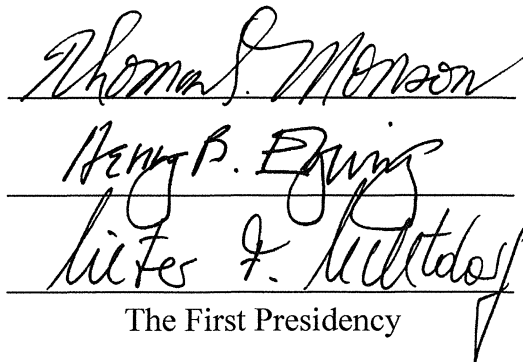 Thomas S. Monson
Henry B. Eyring
Dieter F. Uchtdorf
The First Presidency